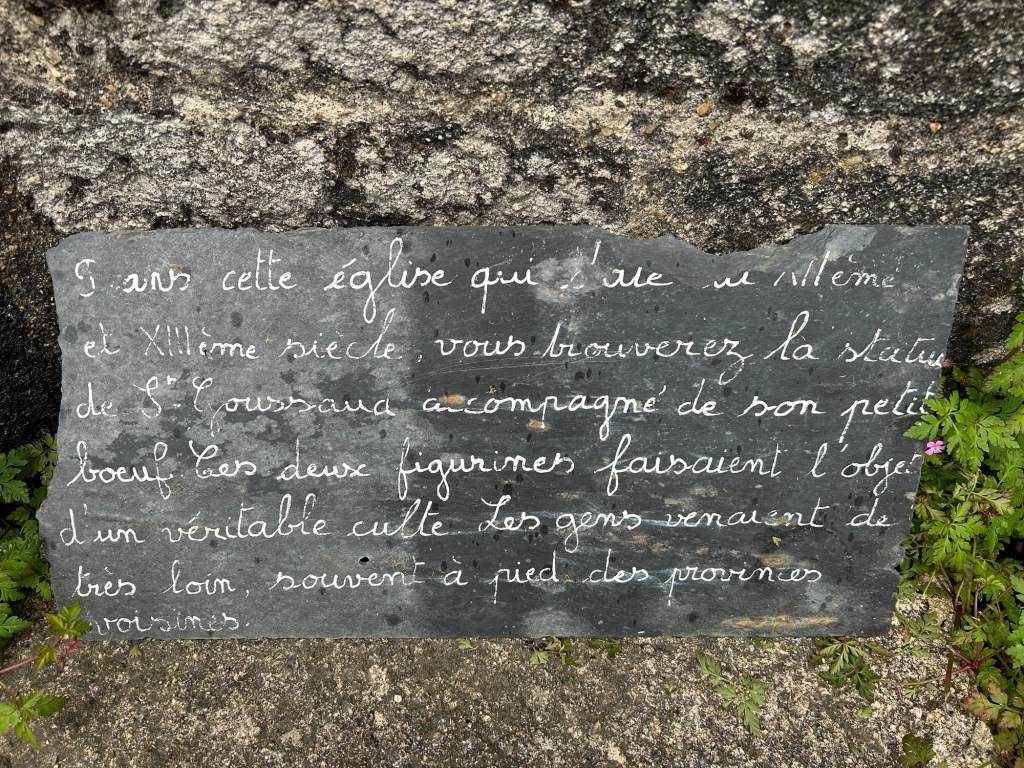 Dans cette église qui date du XIIème
et XIIIème siècle, vous trouverez la statue
de St Goussaud accompagné de son petit
boeuf. Ces deux figurines faisaient l'objet
d'un véritable culte. Les gens venaient de
très loin, souvent à pied des provinces
voisines.